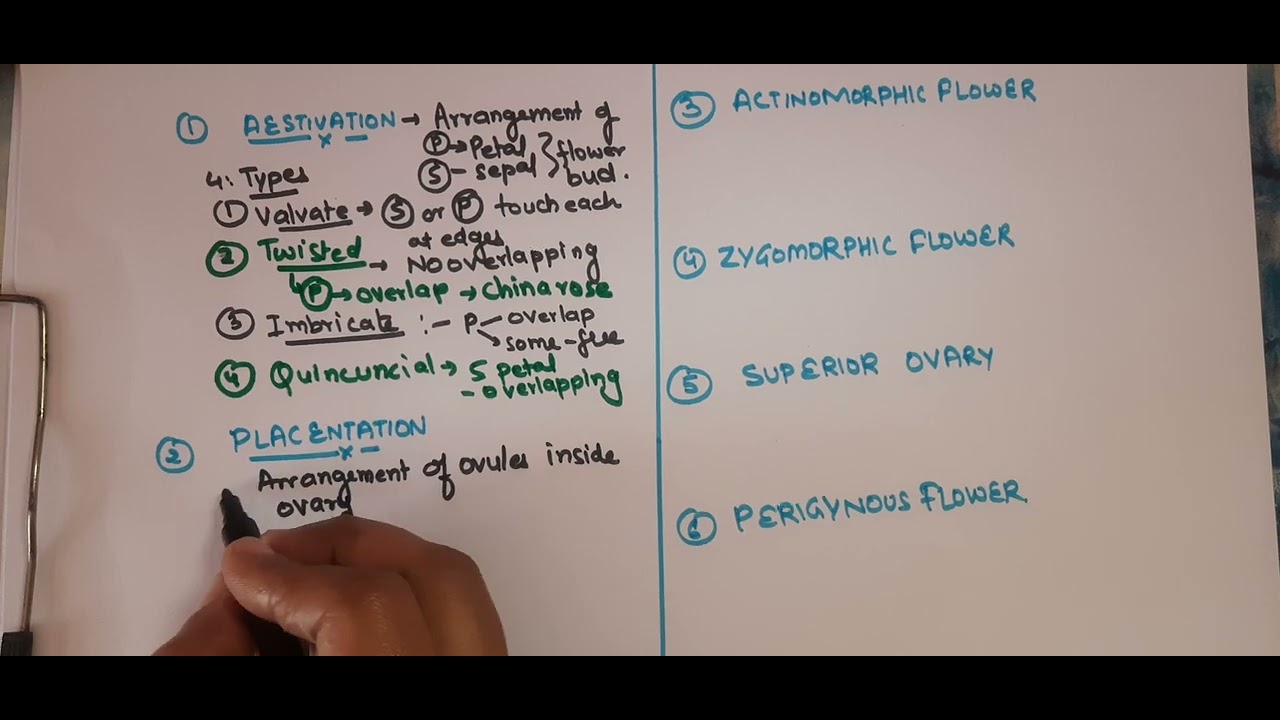 ① AESTIVATION → Arrangement of
Ⓟ → Petal } flower
Ⓢ - sepal } bud.
4: Types
① Valvate → Ⓢ or Ⓟ touch each
at edges
② Twisted → NO overlapping
↳ Ⓟ → overlap → China rose
③ Imbricate :- P - overlap
↘ some-free
④ Quincuncial → 5 petal
- overlapping
② PLACENTATION
Arrangement of ovules inside
ovary
③ ACTINOMORPHIC FLOWER
④ ZYGOMORPHIC FLOWER
⑤ SUPERIOR OVARY
⑥ PERIGYNOUS FLOWER